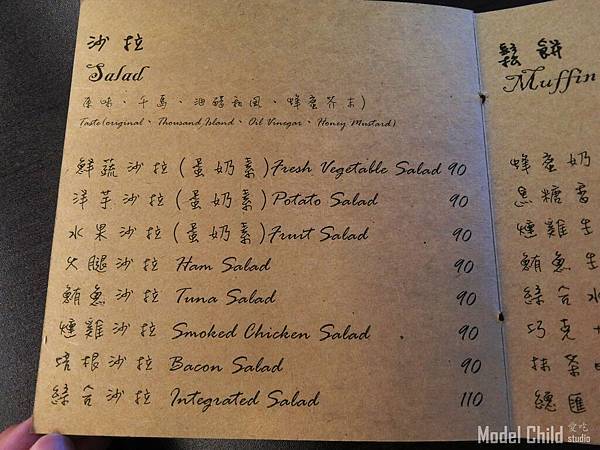 沙拉
Salad
原味、千島、油醋和風、蜂蜜芥末)
Taste(original、Thousand Island、Oil Vinegar、Honey Mustard)
鮮蔬沙拉(蛋奶素)Fresh Vegetable Salad 90
洋芋沙拉(蛋奶素)Potato Salad 90
水果沙拉(蛋奶素)Fruit Salad 90
火腿沙拉 Ham Salad 90
鮪魚沙拉 Tuna Salad 90
燻雞沙拉 Smoked Chicken Salad 90
培根沙拉 Bacon Salad 90
綜合沙拉 Integrated Salad 110
鬆餅
Muffin
蜂蜜奶
黑糖香
燻雞生
鮪魚生
綜合水
巧克
抹茶
總匯
Model Child 愛吃 studio